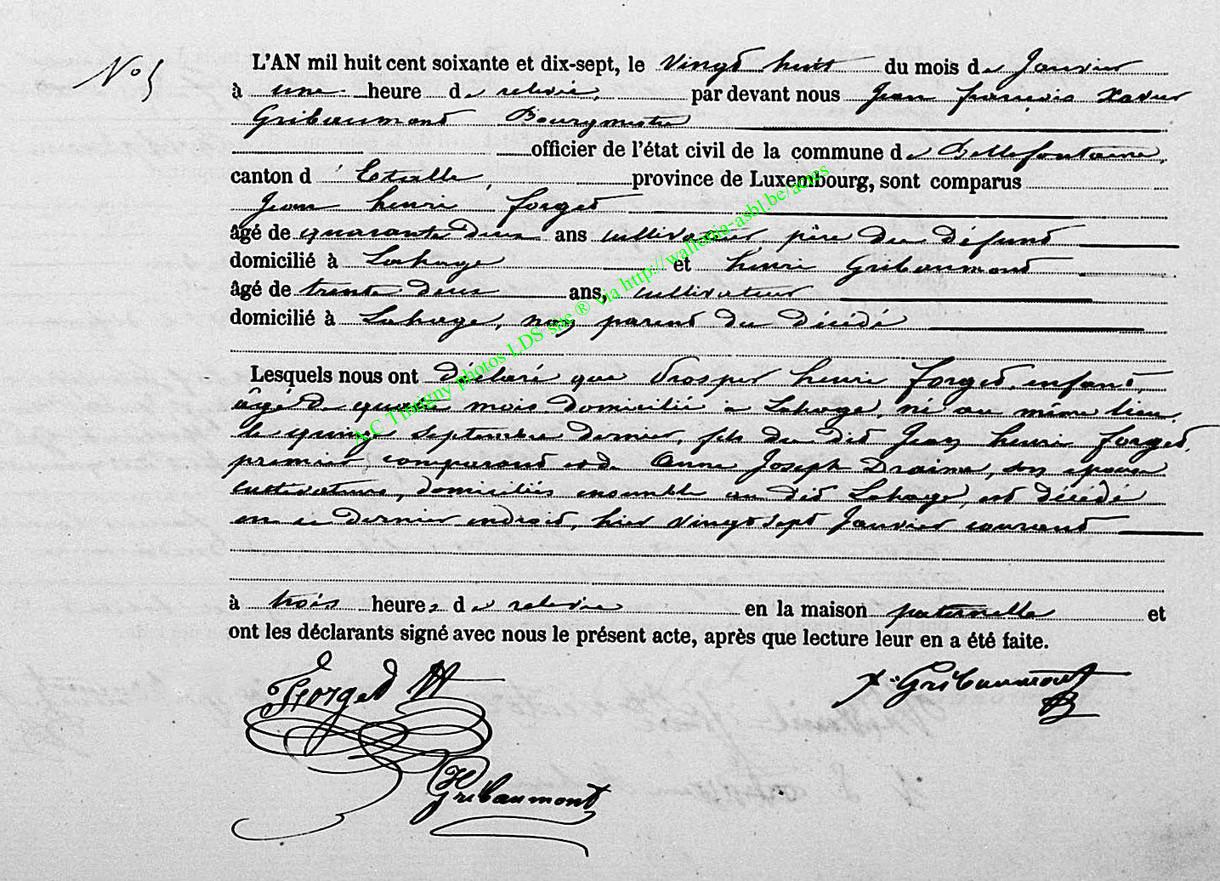 N° 5
L'AN mil huit cent soixante et dix-sept, le vingt huit du mois de Janvier
à une heure de relevée, par devant nous Jean françois Xavier
Gribaumont Bourgmestre
officier de l'état civil de la commune de Bellefontaine,
canton d'Etalle, province de Luxembourg, sont comparus
Jean henri forget
âgé de quarante deux ans cultivateur, père du défunt
domicilié à Lahage et henri Gribaumont
âgé de trente deux ans, cultivateur
domicilié à Lahage, non parent du décédé
Lesquels nous ont déclaré que Prosper henri forget, enfant,
âgé de quatre mois domicilié à Lahage, né au même lieu
le quinze septembre dernier, fils du dit Jean henri forget,
premier comparant et de Anne Joseph Draime, son épouse
cultivateurs, domiciliés ensemble au dit Lahage, est décédé
en ce dernier endroit, hier vingt sept Janvier courant
à trois heures de relevée en la maison paternelle et
ont les déclarants signé avec nous le présent acte, après que lecture leur en a été faite.
Forget H
x. Gribaumont
H Gribaumont
AC Tintigny photos LDS site ® via http://wallonia-asbl.be/actes